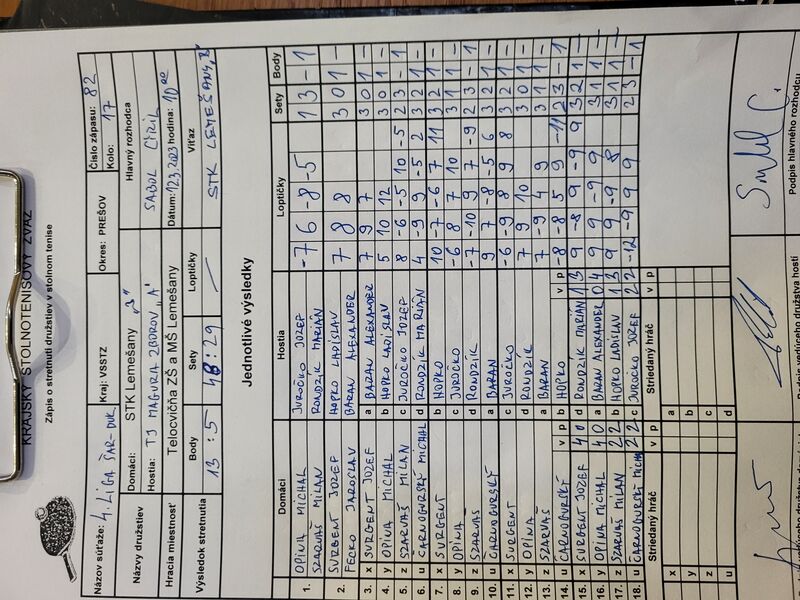 KRAJSKÝ STOLNOTENISOVÝ ZVÄZ
Zápis o stretnutí družstiev v stolnom tenise
Názov súťaže: 4. LIGA ŠAR-DUK Kraj: VSSTZ Okres: PREŠOV Číslo zápasu: 82
Kolo: 17
Názvy družstiev Domáci: STK Lemešany "B" Hlavný rozhodca
Hostia: TJ MAGURA ZBOROV "A" SABOL CYRIL
Hracia miestnosť Telocvičňa ZŠ a MŠ Lemešany Dátum: 12.3.2023 hodina: 10 00
Výsledok stretnutia Body Sety Loptičky Víťaz
13 : 5 48 : 29 / STK LEMEŠANY "B"
Jednotlivé výsledky
Domáci Hostia Loptičky Sety Body
1. OPINA MICHAL JUROČKO JOZEF -7 6 -8 -5 1 3 - 1
SZARVAŠ MILAN RONDZIK MARIÁN
2. SURGENT JOZEF HOPKO LADISLAV 7 8 8 3 0 1 -
FECKO JAROSLAV BARAN ALEXANDER
3. x SURGENT JOZEF a BARAN ALEXANDER 7 9 7 3 0 1 -
4. y OPINA MICHAL b HOPKO LADISLAV 5 10 12 3 0 1 -
5. z SZARVAŠ MILAN c JUROČKO JOZEF 8 -6 -5 10 -5 2 3 - 1
6. u ČARNOGURSKÝ MICHAL d RONDZIK MARIÁN 4 -9 9 -5 2 3 2 1 -
7. x SURGENT b HOPKO 10 -7 -6 7 11 3 2 1 -
8. y OPINA c JUROČKO -6 8 7 10 3 1 1 -
9. z SZARVAŠ d RONDZIK -7 -10 9 7 -9 2 3 - 1
10. u ČARNOGURSKÝ a BARAN 9 7 -8 -5 6 3 2 1 -
11. x SURGENT c JUROČKO -6 -9 8 9 8 3 2 1 -
12. y OPINA d RONDZIK 7 9 10 3 0 1 -
13. z SZARVAŠ a BARAN 7 -9 4 9 3 1 1 -
14. u ČARNOGURSKÝ v p b HOPKO v p -8 -8 5 9 -11 2 3 - 1
15. x SURGENT JOZEF 4 0 d RONDZIK MARIÁN 1 3 9 -8 9 -9 9 3 2 1 -
16. y OPINA MICHAL 4 0 a BARAN ALEXANDER 0 4 9 9 -9 9 3 1 1 -
17. z SZARVAŠ MILAN 2 2 b HOPKO LADISLAV 1 3 9 9 -9 8 3 1 1 -
18. u ČARNOGURSKÝ MICHAL 2 2 c JUROČKO JOZEF 2 2 -12 -9 9 9 2 3 - 1
Striedaný hráč v p Striedaný hráč v p
x a
y b
z c
u d
Podpis vedúceho družstva hostí Podpis hlavného rozhodcu